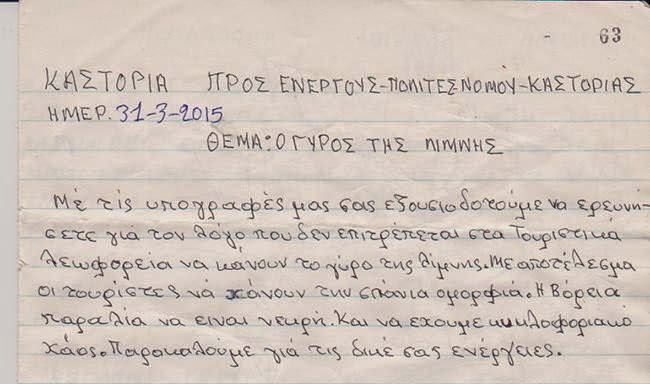 63
ΚΑΣΤΟΡΙΑ ΠΡΟΣ ΕΝΕΡΓΟΥΣ-ΠΟΛΙΤΕΣ ΝΟΜΟΥ-ΚΑΣΤΟΡΙΑΣ
ΗΜΕΡ. 31-3-2015
ΘΕΜΑ: Ο ΓΥΡΟΣ ΤΗΣ ΛΙΜΝΗΣ
Μέ τίς υπογραφές μας σας εξουσιοδοτούμε να ερευνή-
σετε γιά τον λόγο που δεν επιτρέπεται στα Τουριστικά
λεωφορεία να κάνουν το γύρο της λίμνης. Με αποτέλεσμα
οι τουρίστες νά χάνουν την σπάνια ομορφιά. Η Βόρεια
παραλία να ειναι νεκρή. Και να εχουμε κυκλοφοριακό
χάος. Παρακαλούμε γιά τις δικέ σας ενέργειες.